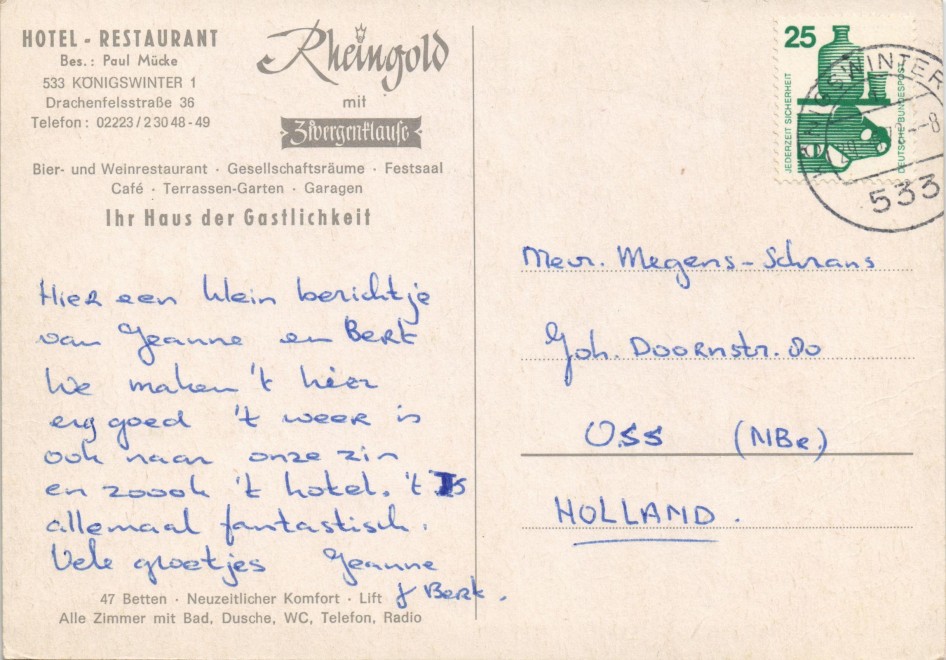 HOTEL - RESTAURANT
Bes.: Paul Mücke
533 KÖNIGSWINTER 1
Drachenfelsstraße 36
Telefon: 02223/2 30 48 - 49
Rheingold
mit
Zwergenklause
Bier- und Weinrestaurant · Gesellschaftsräume · Festsaal
Café · Terrassen-Garten · Garagen
Ihr Haus der Gastlichkeit
Hier een klein berichtje
van Jeanne en Bert
We maken 't hier
erg goed 't weer is
ook naar onze zin
en zoook 't hotel. 't Is
allemaal fantastisch.
Vele groetjes Jeanne
& Bert.
47 Betten · Neuzeitlicher Komfort · Lift
Alle Zimmer mit Bad, Dusche, WC, Telefon, Radio
25
JEDERZEIT SICHERHEIT
DEUTSCHE BUNDESPOST
533
Mevr. Megens-Schrans
Joh. Doornstr. 80
OSS (NBr.)
HOLLAND.